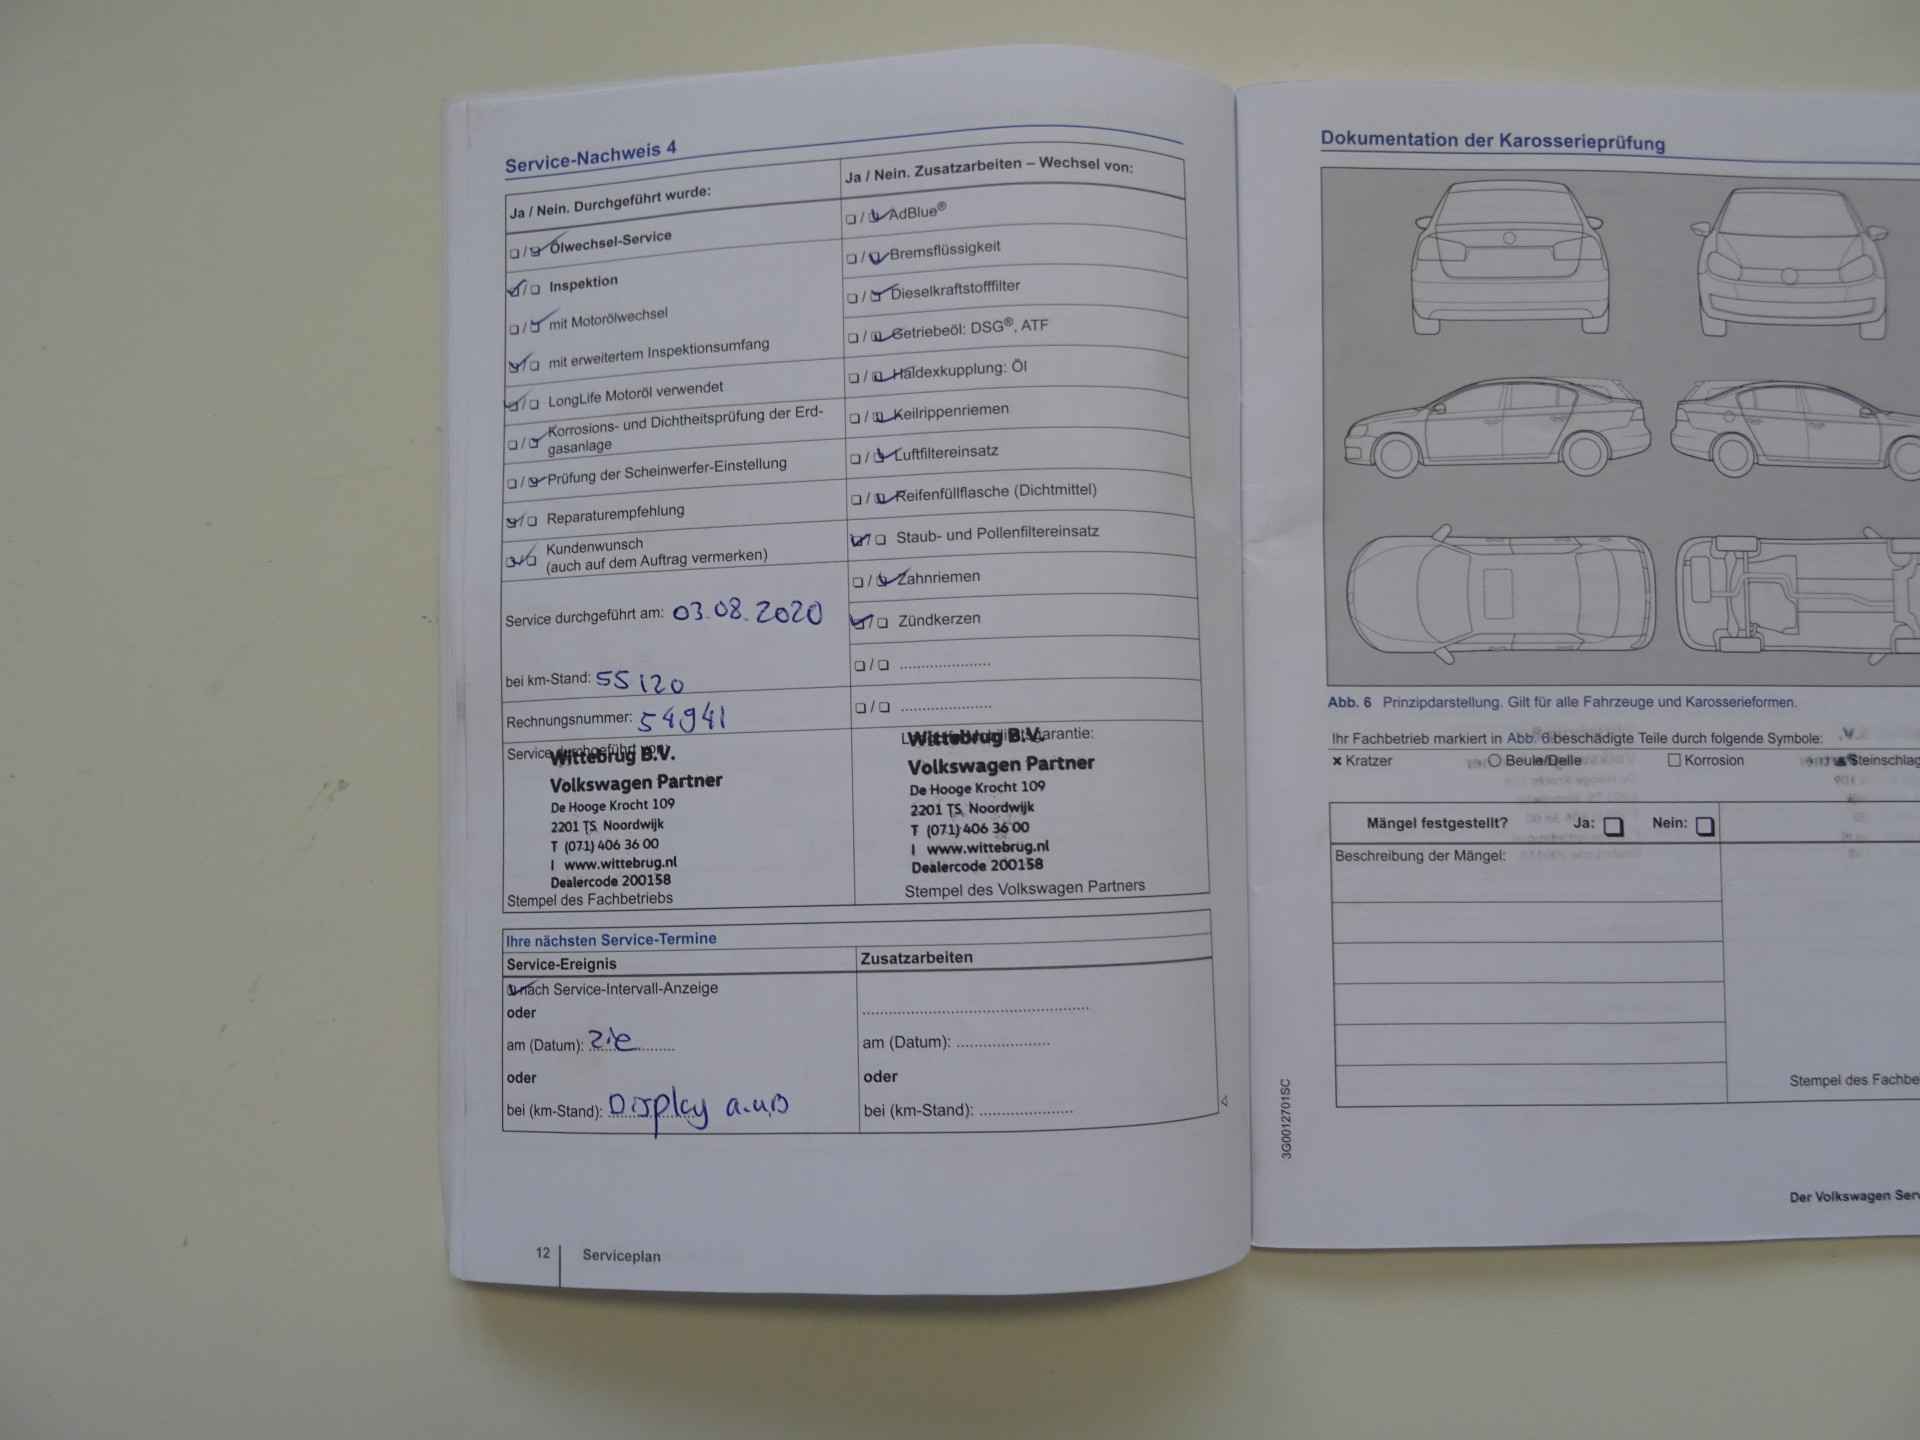 Service-Nachweis 4
Ja / Nein. Durchgeführt wurde:
Ölwechsel-Service
Inspektion
mit Motorölwechsel
mit erweitertem Inspektionsumfang
LongLife Motoröl verwendet
Korrosions- und Dichtheitsprüfung der Erd-
gasanlage
Prüfung der Scheinwerfer-Einstellung
Reparaturempfehlung
Kundenwunsch
(auch auf dem Auftrag vermerken)
Service durchgeführt am: 03.08.2020
bei km-Stand: 55120
Rechnungsnummer: 54941
Service durchgeführt von:
Wittebrug B.V.
Volkswagen Partner
De Hooge Krocht 109
2201 TS Noordwijk
T (071) 406 36 00
I www.wittebrug.nl
Dealercode 200158
Stempel des Fachbetriebs
Ja / Nein. Zusatzarbeiten – Wechsel von:
AdBlue®
Bremsflüssigkeit
Dieselkraftstofffilter
Getriebeöl: DSG®, ATF
Haldexkupplung: Öl
Keilrippenriemen
Luftfiltereinsatz
Reifenfüllflasche (Dichtmittel)
Staub- und Pollenfiltereinsatz
Zahnriemen
Zündkerzen
Wittebrug B.V.
Volkswagen Partner
De Hooge Krocht 109
2201 TS Noordwijk
T (071) 406 36 00
I www.wittebrug.nl
Dealercode 200158
Stempel des Volkswagen Partners
Ihre nächsten Service-Termine
Service-Ereignis
nach Service-Intervall-Anzeige
oder
am (Datum): zie
oder
bei (km-Stand): Display a.u.b
Zusatzarbeiten
am (Datum):
oder
bei (km-Stand):
12 Serviceplan
Dokumentation der Karosserieprüfung
Abb. 6 Prinzipdarstellung. Gilt für alle Fahrzeuge und Karosserieformen.
Ihr Fachbetrieb markiert in Abb. 6 beschädigte Teile durch folgende Symbole:
× Kratzer ○ Beule/Delle □ Korrosion Steinschlag
Mängel festgestellt? Ja: Nein:
Beschreibung der Mängel:
Stempel des Fachbe
3G0012701SC
Der Volkswagen Serv